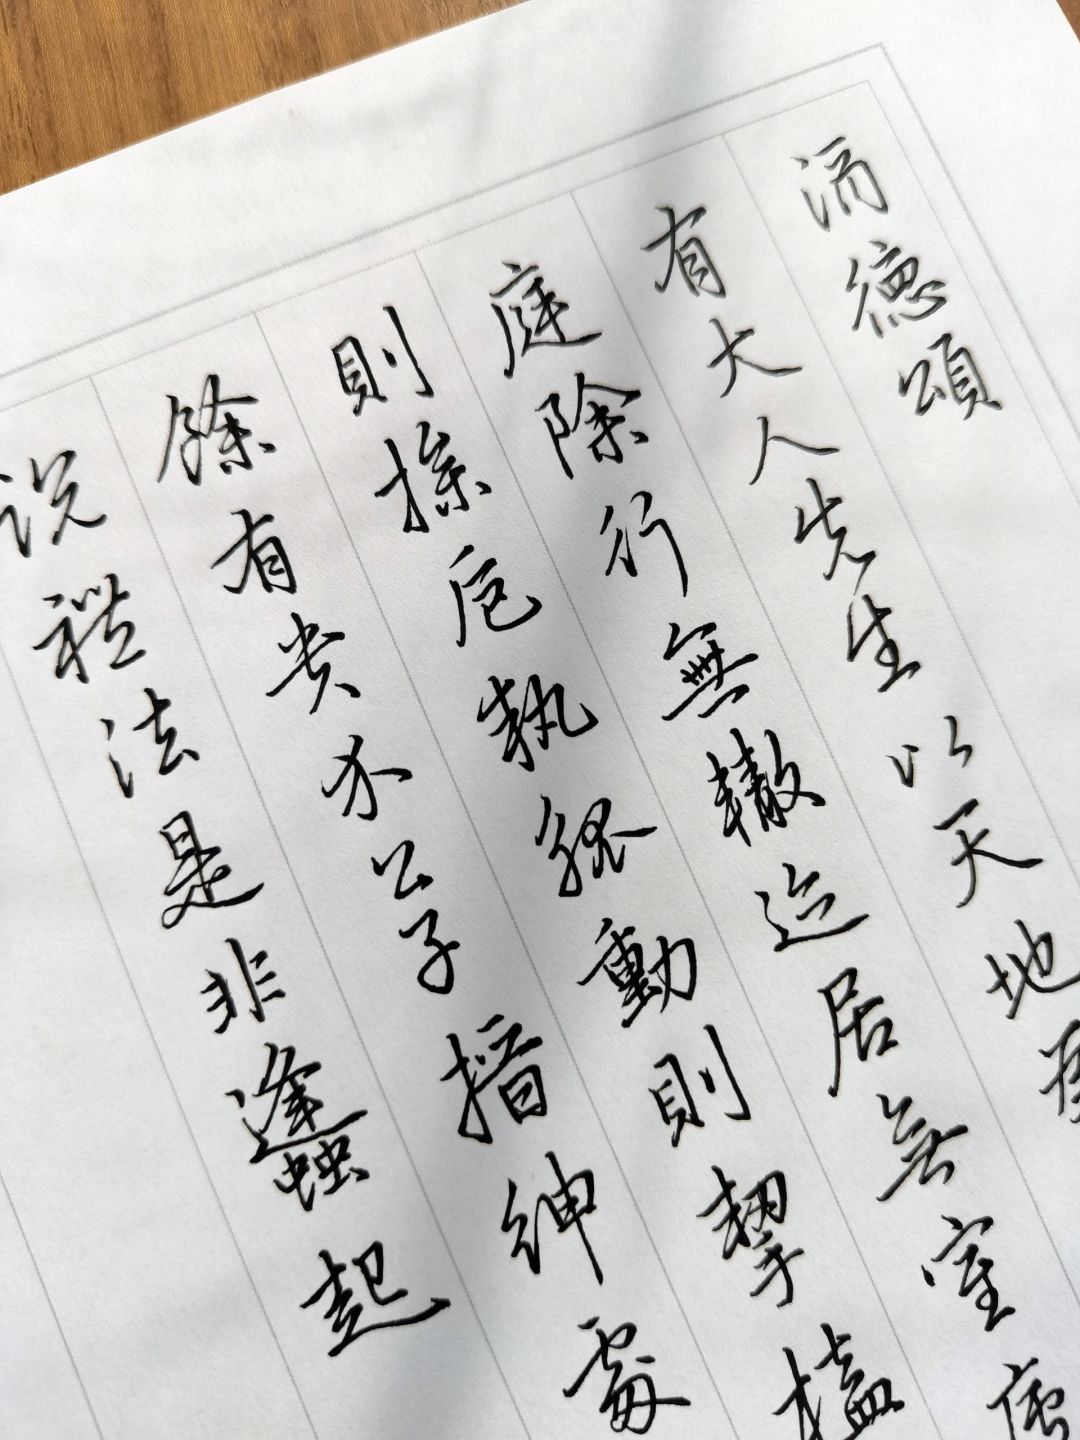 酒德頌
有大人先生以天地
庭除行無轍迹居無室廬
則操卮執觚動則挈榼
餘有貴介公子搢紳處
説禮法是非蠭起